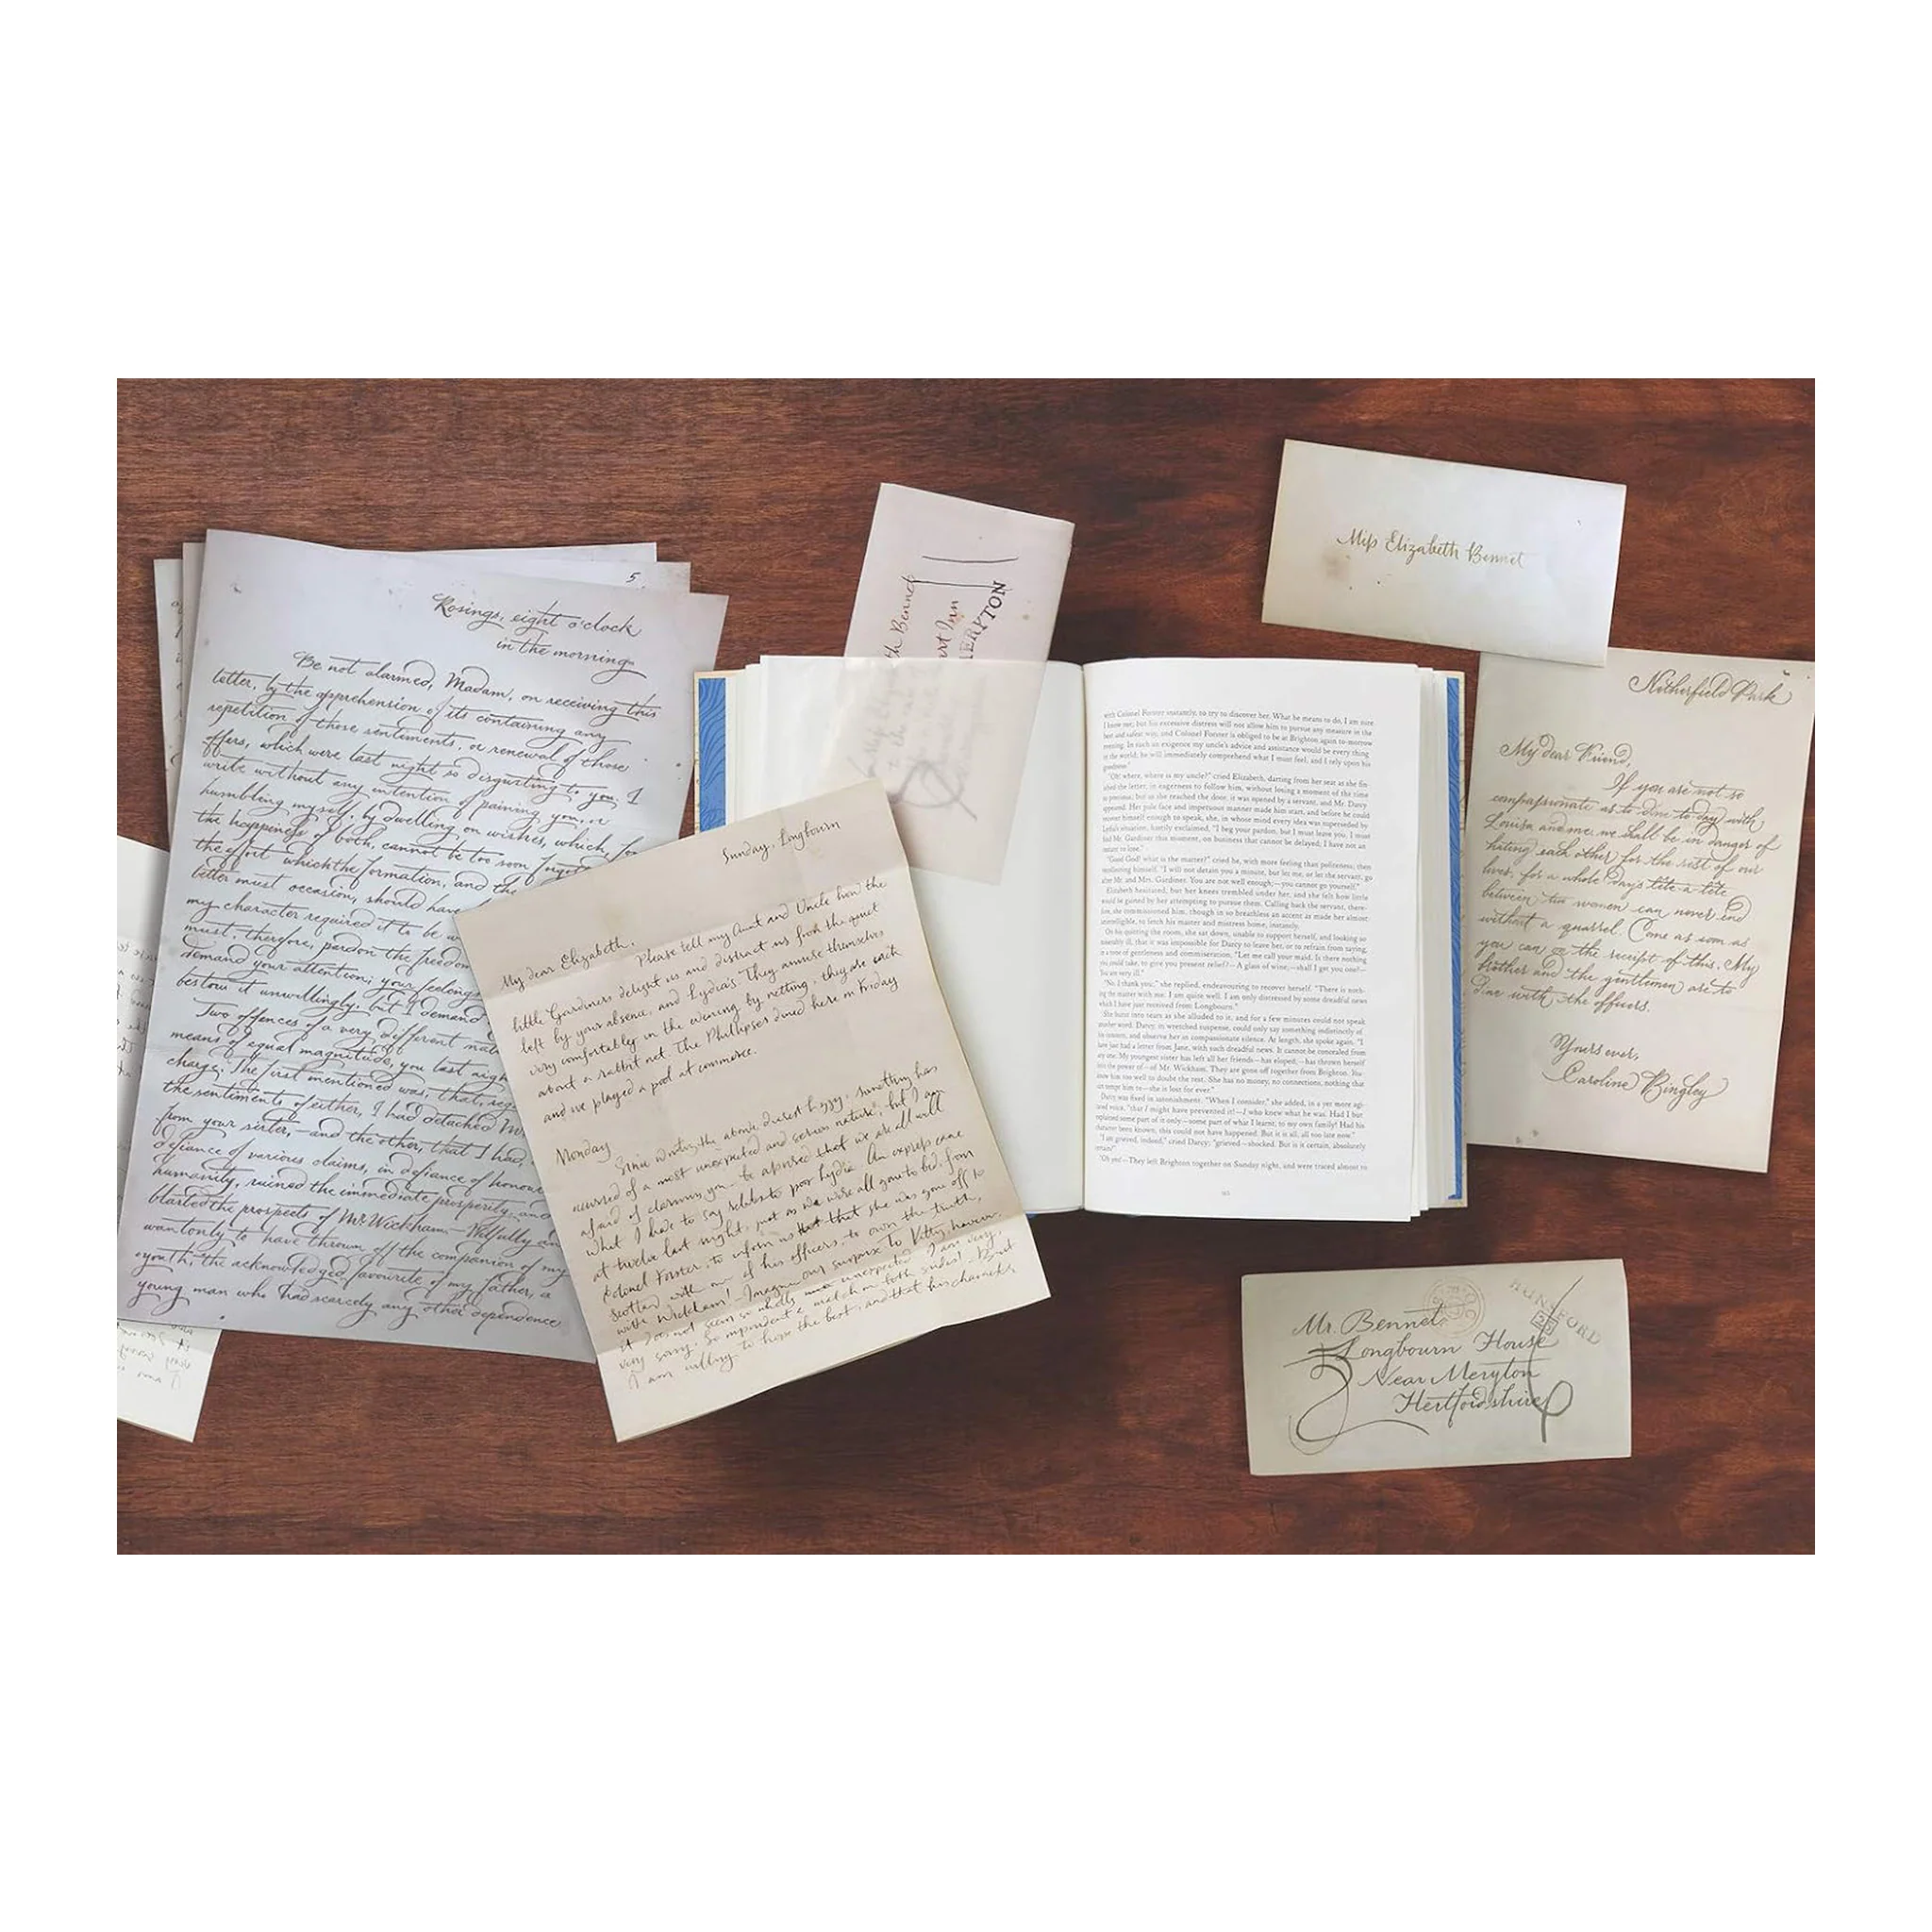 5.
Rosings, eight o'clock
in the morning
Be not alarmed, Madam, on receiving this
letter, by the apprehension of its containing any
repetition of those sentiments, or renewal of those
offers, which were last night so disgusting to you. I
write without any intention of paining you, or
humbling myself, by dwelling on wishes, which, for
the happiness of both, cannot be too soon forgott
the effort which the formation, and the
letter must occasion, should have
my character required it to be w
must, therefore, pardon the freedom
demand your attention; your feelings
bestow it unwillingly, but I demand
Two offences of a very different nat
means of equal magnitude, you last nigh
charge. The first mentioned was, that, reg
the sentiments of either, I had detached Mr.
from your sister,—and the other, that I had,
defiance of various claims, in defiance of honour
humanity, ruined the immediate prosperity, and
blasted the prospects of Mr. Wickham.—Wilfully an
wantonly to have thrown off the companion of my
youth, the acknowledged favourite of my father, a
young man who had scarcely any other dependence
Sunday, Longbourn
My dear Elizabeth,
Please tell my Aunt and Uncle how the
little Gardiners delight us and distract us from the quiet
left by your absence, and Lydia's. They amuse themselves
very comfortably in the evening by netting, they are each
about a rabbit net. The Phillipses dined here on Friday
and we played a pool at commerce.
Monday
Since writing the above, dearest Lizzy, something has
occurred of a most unexpected and serious nature; but I am
afraid of alarming you—be assured that we are all well.
What I have to say relates to poor Lydia. An express came
at twelve last night, just as we were all gone to bed, from
Colonel Forster, to inform us that she was gone off to
Scotland with one of his officers; to own the truth,
with Wickham!—Imagine our surprise. To Kitty, however,
it does not seem so wholly unexpected. I am very,
very sorry. So imprudent a match on both sides!—But
I am willing to hope the best, and that his character
th Bennet
art Inn
MERYTON
with Colonel Forster instantly, to try to discover her. What he means to do, I am sure
I know not; but his excessive distress will not allow him to pursue any measure in the
best and safest way, and Colonel Forster is obliged to be at Brighton again to-morrow
evening. In such an exigence my uncle's advice and assistance would be every thing
in the world; he will immediately comprehend what I must feel, and I rely upon his
goodness."
"Oh! where, where is my uncle?" cried Elizabeth, darting from her seat as she fin-
ished the letter, in eagerness to follow him, without losing a moment of the time
so precious; but as she reached the door, it was opened by a servant, and Mr. Darcy
appeared. Her pale face and impetuous manner made him start, and before he could
recover himself enough to speak, she, in whose mind every idea was superseded by
Lydia's situation, hastily exclaimed, "I beg your pardon, but I must leave you. I must
find Mr. Gardiner this moment, on business that cannot be delayed; I have not an
instant to lose."
"Good God! what is the matter?" cried he, with more feeling than politeness; then
recollecting himself, "I will not detain you a minute, but let me, or let the servant, go
after Mr. and Mrs. Gardiner. You are not well enough;—you cannot go yourself."
Elizabeth hesitated, but her knees trembled under her, and she felt how little
would be gained by her attempting to pursue them. Calling back the servant, there-
fore, she commissioned him, though in so breathless an accent as made her almost
unintelligible, to fetch his master and mistress home, instantly.
On his quitting the room, she sat down, unable to support herself, and looking so
miserably ill, that it was impossible for Darcy to leave her, or to refrain from saying,
in a tone of gentleness and commiseration, "Let me call your maid. Is there nothing
you could take, to give you present relief?—A glass of wine;—shall I get you one?—
You are very ill."
"No, I thank you;" she replied, endeavouring to recover herself. "There is noth-
ing the matter with me. I am quite well. I am only distressed by some dreadful news
which I have just received from Longbourn."
She burst into tears as she alluded to it, and for a few minutes could not speak
another word. Darcy, in wretched suspense, could only say something indistinctly of
his concern, and observe her in compassionate silence. At length, she spoke again. "I
have just had a letter from Jane, with such dreadful news. It cannot be concealed from
any one. My youngest sister has left all her friends—has eloped;—has thrown herself
into the power of—of Mr. Wickham. They are gone off together from Brighton. You
know him too well to doubt the rest. She has no money, no connections, nothing that
can tempt him to—she is lost for ever."
Darcy was fixed in astonishment. "When I consider," she added, in a yet more agi-
tated voice, "that I might have prevented it!—I who knew what he was. Had I but
explained some part of it only—some part of what I learnt, to my own family! Had his
character been known, this could not have happened. But it is all, all too late now."
"I am grieved, indeed," cried Darcy; "grieved—shocked. But is it certain, absolutely
certain?"
"Oh yes!—They left Brighton together on Sunday night, and were traced almost to
Miss Elizabeth Bennet
Netherfield Park
My dear Friend,
If you are not so
compassionate as to dine to-day with
Louisa and me, we shall be in danger of
hating each other for the rest of our
lives, for a whole day's tête-à-tête
between two women can never end
without a quarrel. Come as soon as
you can on the receipt of this. My
brother and the gentlemen are to
dine with the officers.
Yours ever,
Caroline Bingley
HUNSFORD
Mr. Bennet
Longbourn House
Near Meryton
Hertfordshire